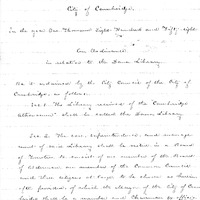 City of Cambridge.
In the year One Thousand Eight Hundred and Fifty-eight
An Ordinance
in relation to the Dana Library
Be it ordained by the City Council of the City of
Cambridge, as follows.
Sec. 1. The Library received of the Cambridge
Athenaeum shall be called the Dana Library.
Sec. 2. The care, superintendence, and manage-
ment of said Library shall be vested in a Board
of Trustees to consist of one member of the Board
of Aldermen two members of the Common Council
and three citizens at large to be chosen as herein-
after provided, of which the Mayor of the City of Cam-
bridge shall be a member and Chairman ex officio.